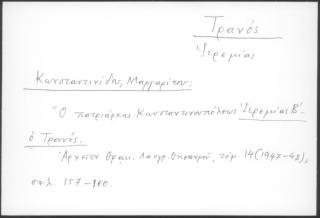 Τρανός
Ἱερεμίας
Κωνσταντινίδης, Μαργαρίτου:
Ὁ πατριάρχης Κωνσταντινουπόλεως Ἱερεμίας Β΄-
ὁ Τρανός.
Ἀρχεῖον Θρακ. Λαογρ. Θησαυροῦ, τόμ. 14 (1947-48),
σελ. 157-180.